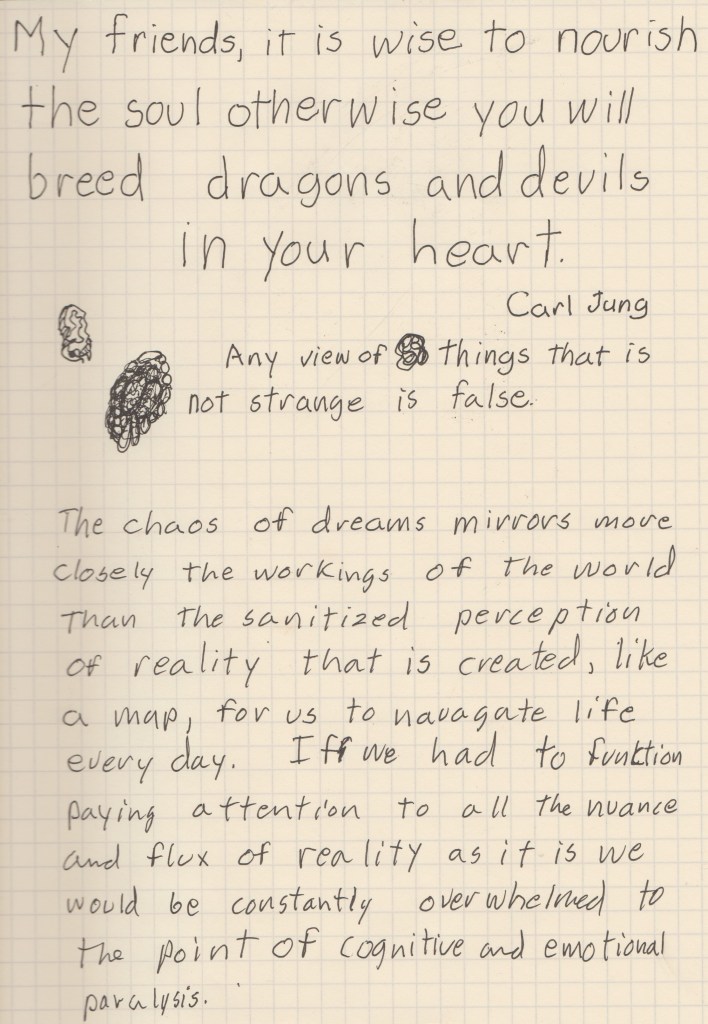 My friends, it is wise to nourish
the soul otherwise you will
breed dragons and devils
in your heart.
Carl Jung
Any view of things that is
not strange is false.
The chaos of dreams mirrors more
closely the workings of the world
Than the sanitized perception
of reality that is created, like
a map, for us to navagate life
every day. If we had to funktion
paying attention to all the nuance
and flux of reality as it is we
would be constantly overwhelmed to
the point of cognitive and emotional
paralysis.